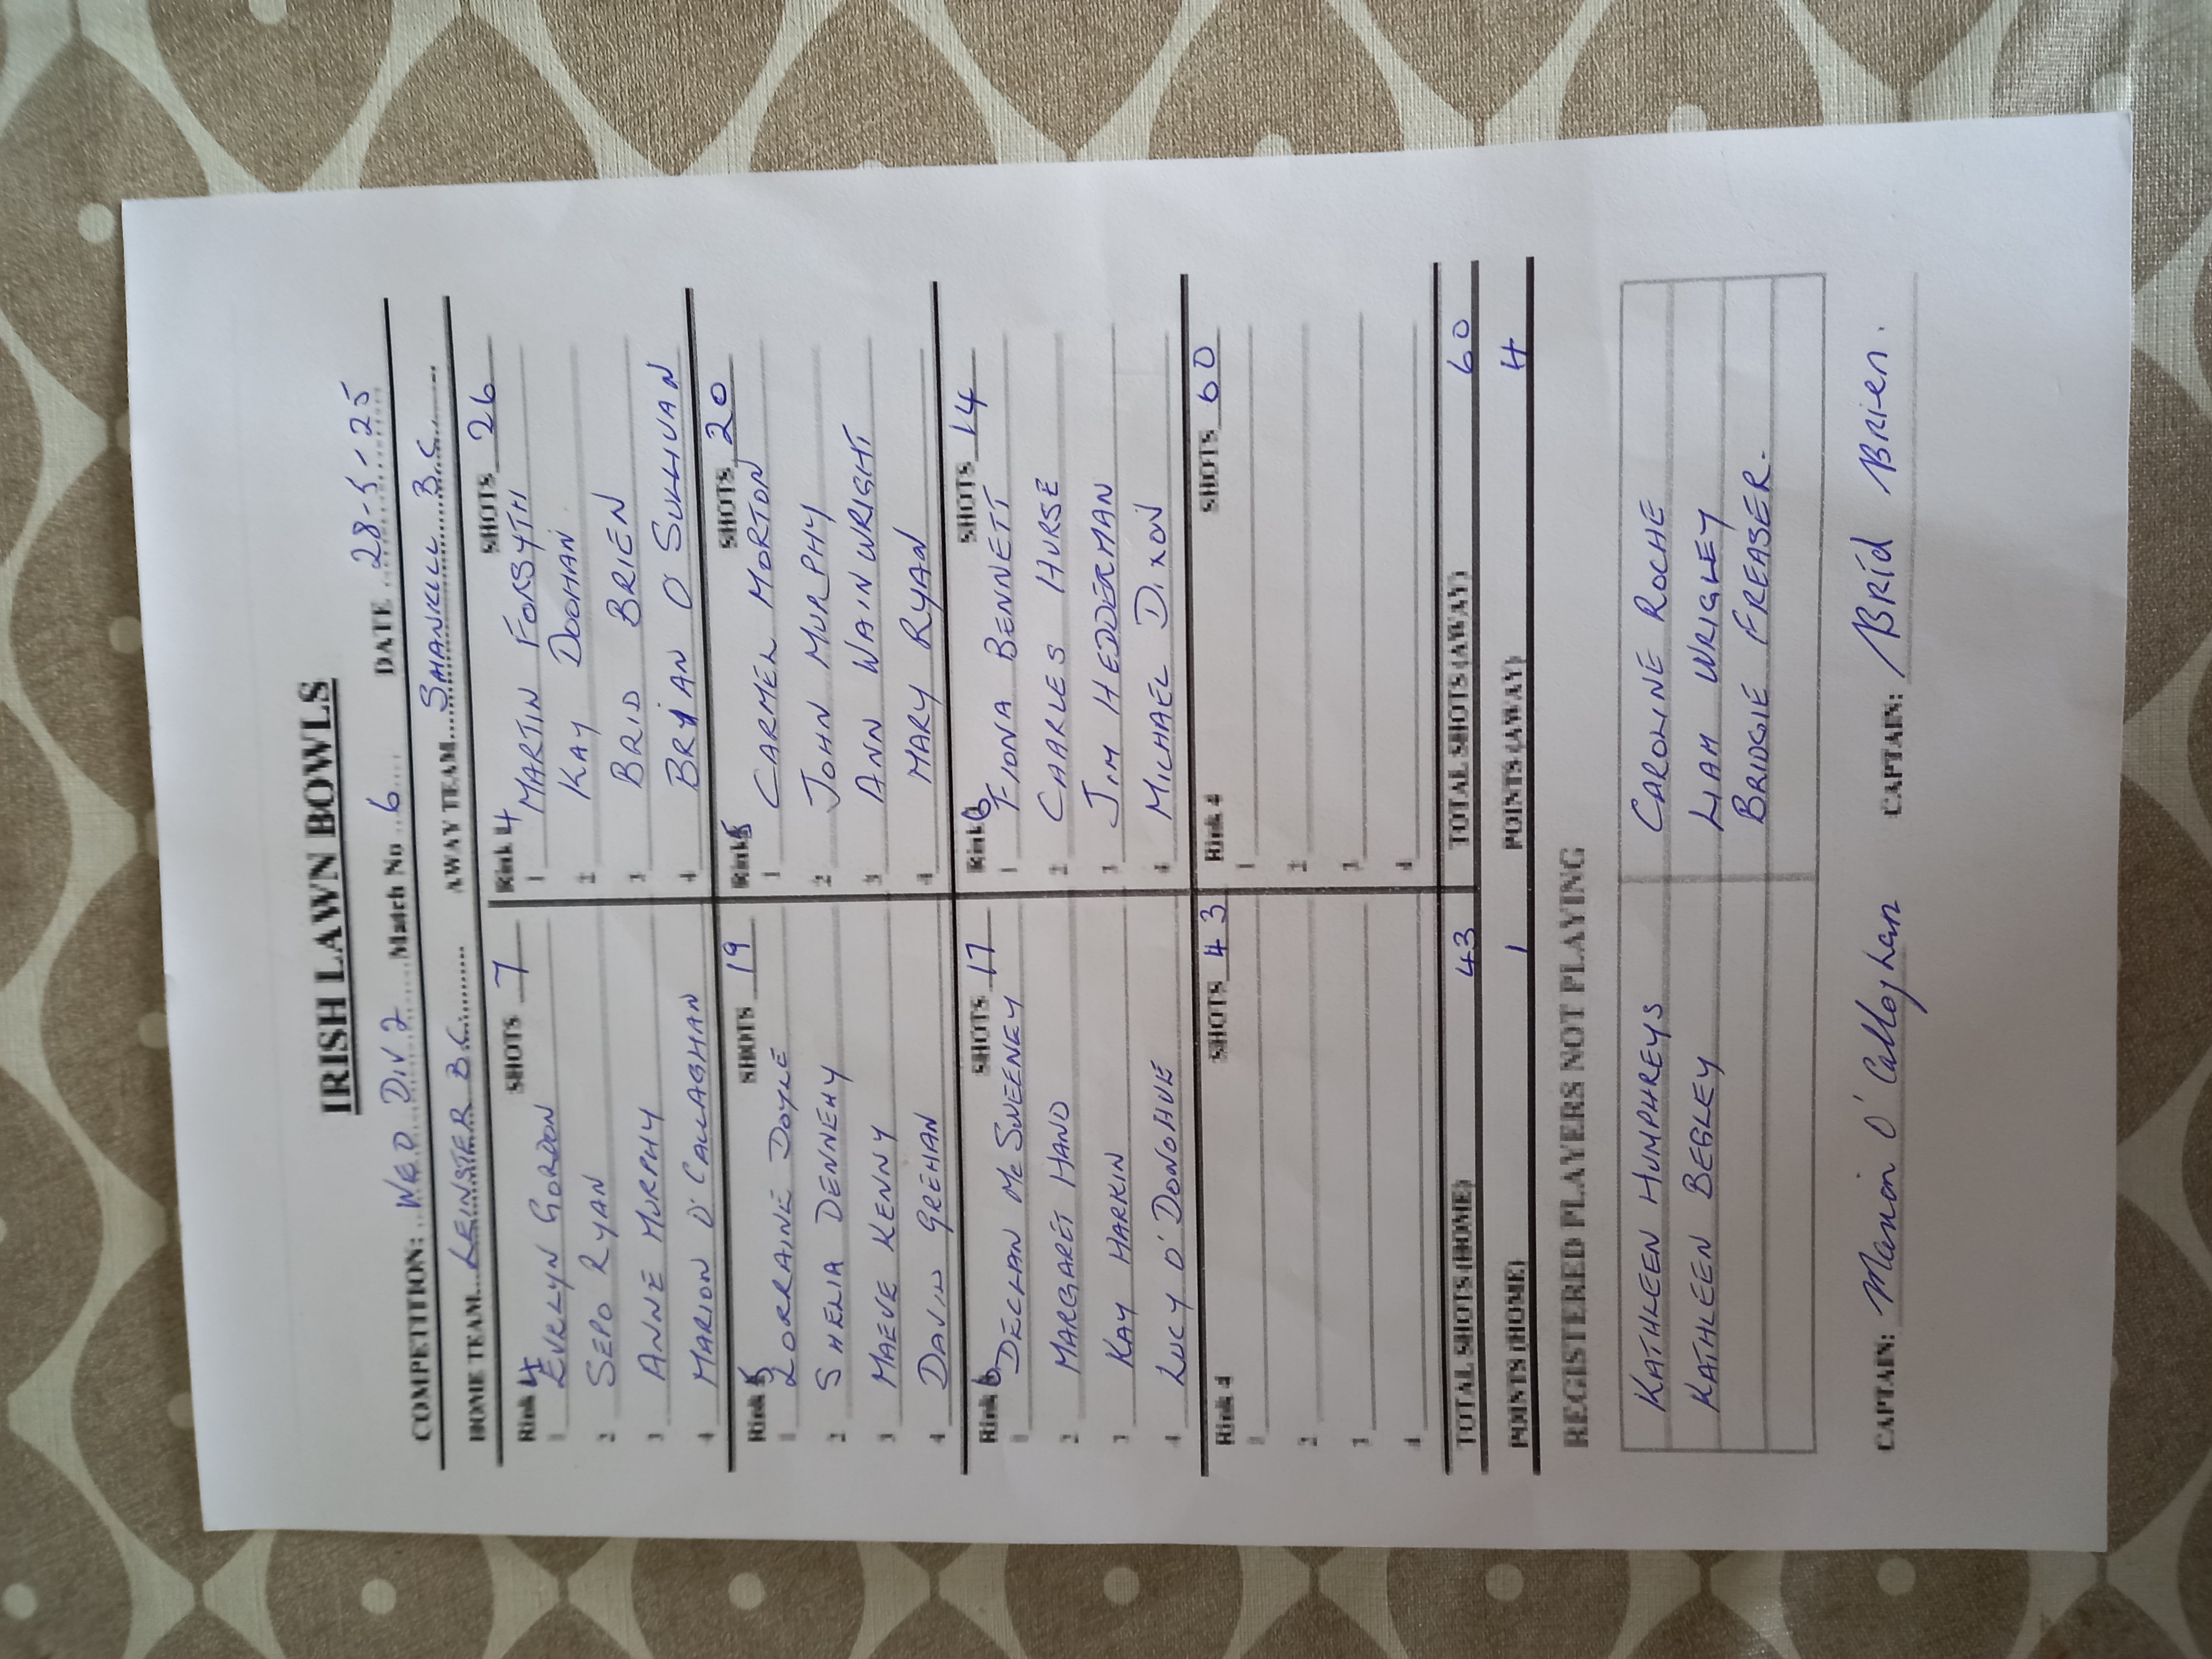 IRISH LAWN BOWLS
COMPETITION: WED DIV 2 Match No 6 DATE 28-5-25
HOME TEAM LEINSTER B.C. AWAY TEAM SHANKILL B.C.
Rink 4 SHOTS 7 Rink 4 SHOTS 26
1 EVELYN GORDON 1 MARTIN FORSYTH
2 SEPO RYAN 2 KAY DOOHAN
3 ANNE MURPHY 3 BRID BRIEN
4 MARION O'CALLAGHAN 4 BRYAN O SULLIVAN
Rink 5 SHOTS 19 Rink 5 SHOTS 20
1 LORRAINE DOYLE 1 CARMEL MORTON
2 SHELIA DENNEHY 2 JOHN MURPHY
3 MAEVE KENNY 3 ANN WAINWRIGHT
4 DAVID GREHAN 4 MARY RYAN
Rink 6 SHOTS 17 Rink 6 SHOTS 14
1 DECLAN Mc SWEENEY 1 FIONA BENNETT
2 MARGARET HAND 2 CARLES HURSE
3 KAY HARKIN 3 JIM HEDDERMAN
4 LUCY O'DONOHUE 4 MICHAEL DIXON
Rink 4 SHOTS 43 Rink 4 SHOTS 60
1 1
2 2
3 3
4 4
TOTAL SHOTS (HOME) 43 TOTAL SHOTS (AWAY) 60
POINTS (HOME) 1 POINTS (AWAY) 4
REGISTERED PLAYERS NOT PLAYING
KATHLEEN HUMPHREYS CAROLINE ROCHE
KATHLEEN BEGLEY LIAM WRIGLEY
BRIDGIE FREASER.
CAPTAIN: Marion O'Calloghan CAPTAIN: Bríd Brien.